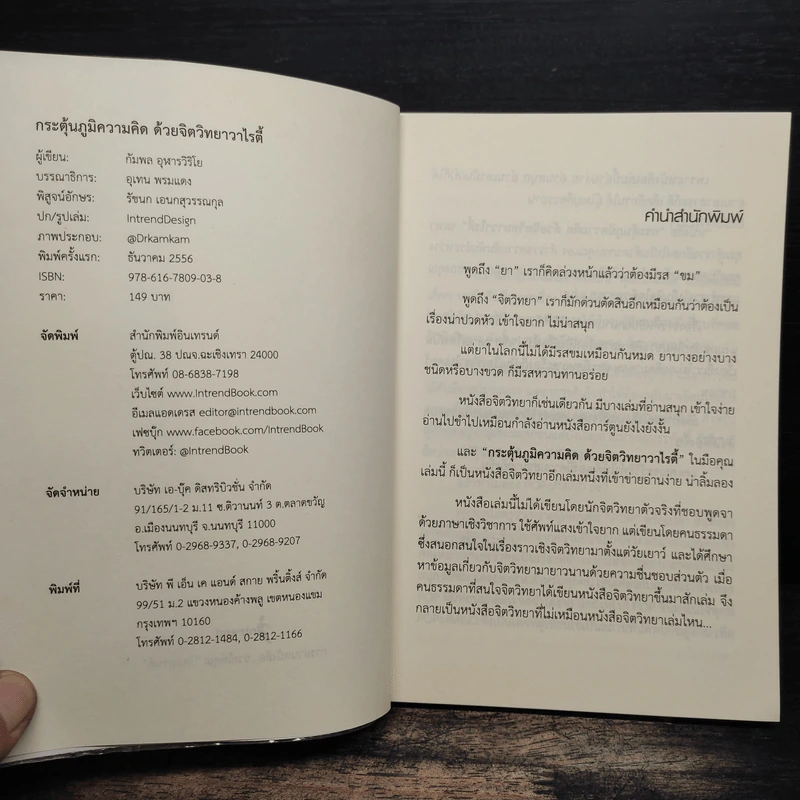 กระตุ้นภูมิความคิด ด้วยจิตวิทยาวาไรตี้
ผู้เขียน: กัมพล อุฬารวิริโย
บรรณาธิการ: อุเทน พรมแดง
พิสูจน์อักษร: รัชนก เอนกสุวรรณกุล
ปก/รูปเล่ม: IntrendDesign
ภาพประกอบ: @Drkamkam
พิมพ์ครั้งแรก: ธันวาคม 2556
ISBN: 978-616-7809-03-8
ราคา: 149 บาท
จัดพิมพ์ สำนักพิมพ์อินเทรนด์
ตู้ปณ. 38 ปณจ.ฉะเชิงเทรา 24000
โทรศัพท์ 08-6838-7198
เว็บไซต์ www.IntrendBook.com
อีเมลแอดเดรส editor@intrendbook.com
เฟซบุ๊ก www.facebook.com/IntrendBook
ทวิตเตอร์: @IntrendBook
จัดจำหน่าย บริษัท เอ-บุ๊ค ดิสทริบิวชั่น จำกัด
91/165/1-2 ม.11 ซ.ติวานนท์ 3 ต.ตลาดขวัญ
อ.เมืองนนทบุรี จ.นนทบุรี 11000
โทรศัพท์ 0-2968-9337, 0-2968-9207
พิมพ์ที่ บริษัท พี เอ็น เค แอนด์ สกาย พริ้นติ้งส์ จำกัด
99/51 ม.2 แขวงหนองค้างพลู เขตหนองแขม
กรุงเทพฯ 10160
โทรศัพท์ 0-2812-1484, 0-2812-1166
คำนำสำนักพิมพ์
พูดถึง “ยา” เราก็คิดล่วงหน้าแล้วว่าต้องมีรส “ขม”
พูดถึง “จิตวิทยา” เราก็มักด่วนตัดสินอีกเหมือนกันว่าต้องเป็น
เรื่องน่าปวดหัว เข้าใจยาก ไม่น่าสนุก
แต่ยาในโลกนี้ไม่ได้มีรสขมเหมือนกันหมด ยาบางอย่างบาง
ชนิดหรือบางขวด ก็มีรสหวานทานอร่อย
หนังสือจิตวิทยาก็เช่นเดียวกัน มีบางเล่มที่อ่านสนุก เข้าใจง่าย
อ่านไปขำไปเหมือนกำลังอ่านหนังสือการ์ตูนยังไงยังงั้น
และ “กระตุ้นภูมิความคิด ด้วยจิตวิทยาวาไรตี้” ในมือคุณ
เล่มนี้ ก็เป็นหนังสือจิตวิทยาอีกเล่มหนึ่งที่เข้าข่ายอ่านง่าย น่าลิ้มลอง
หนังสือเล่มนี้ไม่ได้เขียนโดยนักจิตวิทยาตัวจริงที่ชอบพูดจา
ด้วยภาษาเชิงวิชาการ ใช้ศัพท์แสงเข้าใจยาก แต่เขียนโดยคนธรรมดา
ซึ่งสนอกสนใจในเรื่องราวเชิงจิตวิทยามาตั้งแต่วัยเยาว์ และได้ศึกษา
หาข้อมูลเกี่ยวกับจิตวิทยามายาวนานด้วยความชื่นชอบส่วนตัว เมื่อ
คนธรรมดาที่สนใจจิตวิทยาได้เขียนหนังสือจิตวิทยาขึ้นมาสักเล่ม จึง
กลายเป็นหนังสือจิตวิทยาที่ไม่เหมือนหนังสือจิตวิทยาเล่มไหน...